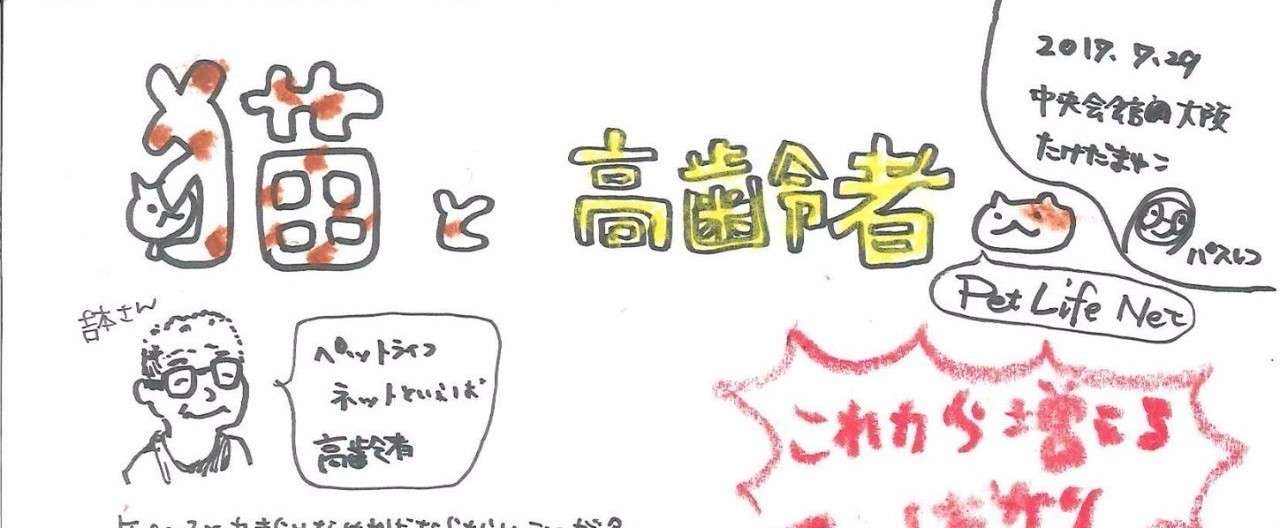 猫と高齢者
2017.7.29
中央会館@大阪
たけだまゆこ
パスレコ
Pet Life Net
吉本さん
ペットライフ
ネットといえば
高齢者
これから増える